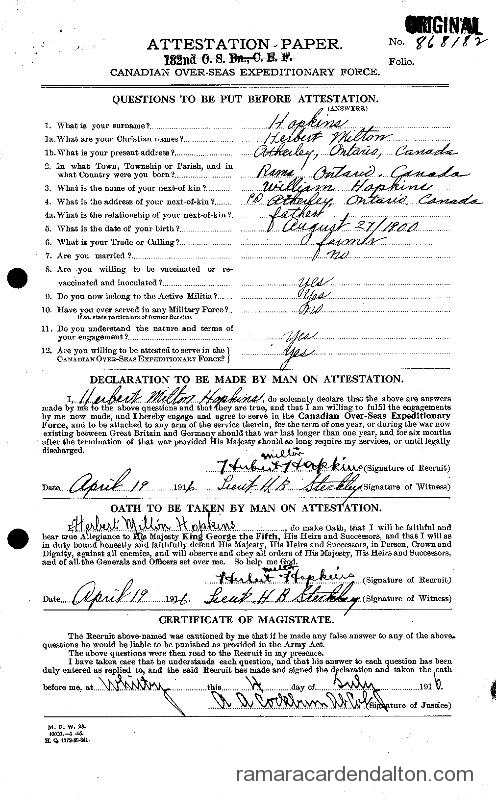 ORIGINAL
No. 868182
Folio.
ATTESTATION PAPER.
182nd O. S. Bn., C. E. F.
CANADIAN OVER-SEAS EXPEDITIONARY FORCE.
QUESTIONS TO BE PUT BEFORE ATTESTATION.
(ANSWERS)
1. What is your surname? Hopkins
1a. What are your Christian names? Herbert Milton
1b. What is your present address? Atherley, Ontario, Canada
2. In what Town, Township or Parish, and in
what Country were you born? Rama, Ontario, Canada
3. What is the name of your next-of-kin? William Hopkins
4. What is the address of your next-of-kin? PO Atherley, Ontario, Canada
4a. What is the relationship of your next-of-kin? father
5. What is the date of your birth? August 27/1900
6. What is your Trade or Calling? farmer
7. Are you married? no
8. Are you willing to be vaccinated or re-
vaccinated and inoculated? Yes
9. Do you now belong to the Active Militia? Yes
10. Have you ever served in any Military Force? no
If so, state particulars of former Service.
11. Do you understand the nature and terms of
your engagement? Yes
12. Are you willing to be attested to serve in the
CANADIAN OVER-SEAS EXPEDITIONARY FORCE? Yes
DECLARATION TO BE MADE BY MAN ON ATTESTATION.
I, Herbert Milton Hopkins, do solemnly declare that the above are answers
made by me to the above questions and that they are true, and that I am willing to fulfil the engagements
by me now made, and I hereby engage and agree to serve in the Canadian Over-Seas Expeditionary
Force, and to be attached to any arm of the service therein, for the term of one year, or during the war now
existing between Great Britain and Germany should that war last longer than one year, and for six months
after the termination of that war provided His Majesty should so long require my services, or until legally
discharged.
Herbert Milton Hopkins (Signature of Recruit)
Date April 19 1916 Lieut H B Steckley (Signature of Witness)
OATH TO BE TAKEN BY MAN ON ATTESTATION.
I, Herbert Milton Hopkins, do make Oath, that I will be faithful and
bear true Allegiance to His Majesty King George the Fifth, His Heirs and Successors, and that I will as
in duty bound honestly and faithfully defend His Majesty, His Heirs and Successors, in Person, Crown and
Dignity, against all enemies, and will observe and obey all orders of His Majesty, His Heirs and Successors,
and of all the Generals and Officers set over me. So help me God.
Herbert Milton Hopkins (Signature of Recruit)
Date April 19 1916 Lieut H B Steckley (Signature of Witness)
CERTIFICATE OF MAGISTRATE.
The Recruit above-named was cautioned by me that if he made any false answer to any of the above
questions he would be liable to be punished as provided in the Army Act.
The above questions were then read to the Recruit in my presence.
I have taken care that he understands each question, and that his answer to each question has been
duly entered as replied to, and the said Recruit has made and signed the declaration and taken the oath
before me, at Whitby this 4 day of July 1916
A A Cockburn Lt Col (Signature of Justice)
M. F. W. 23.
ramaracardendalton.com